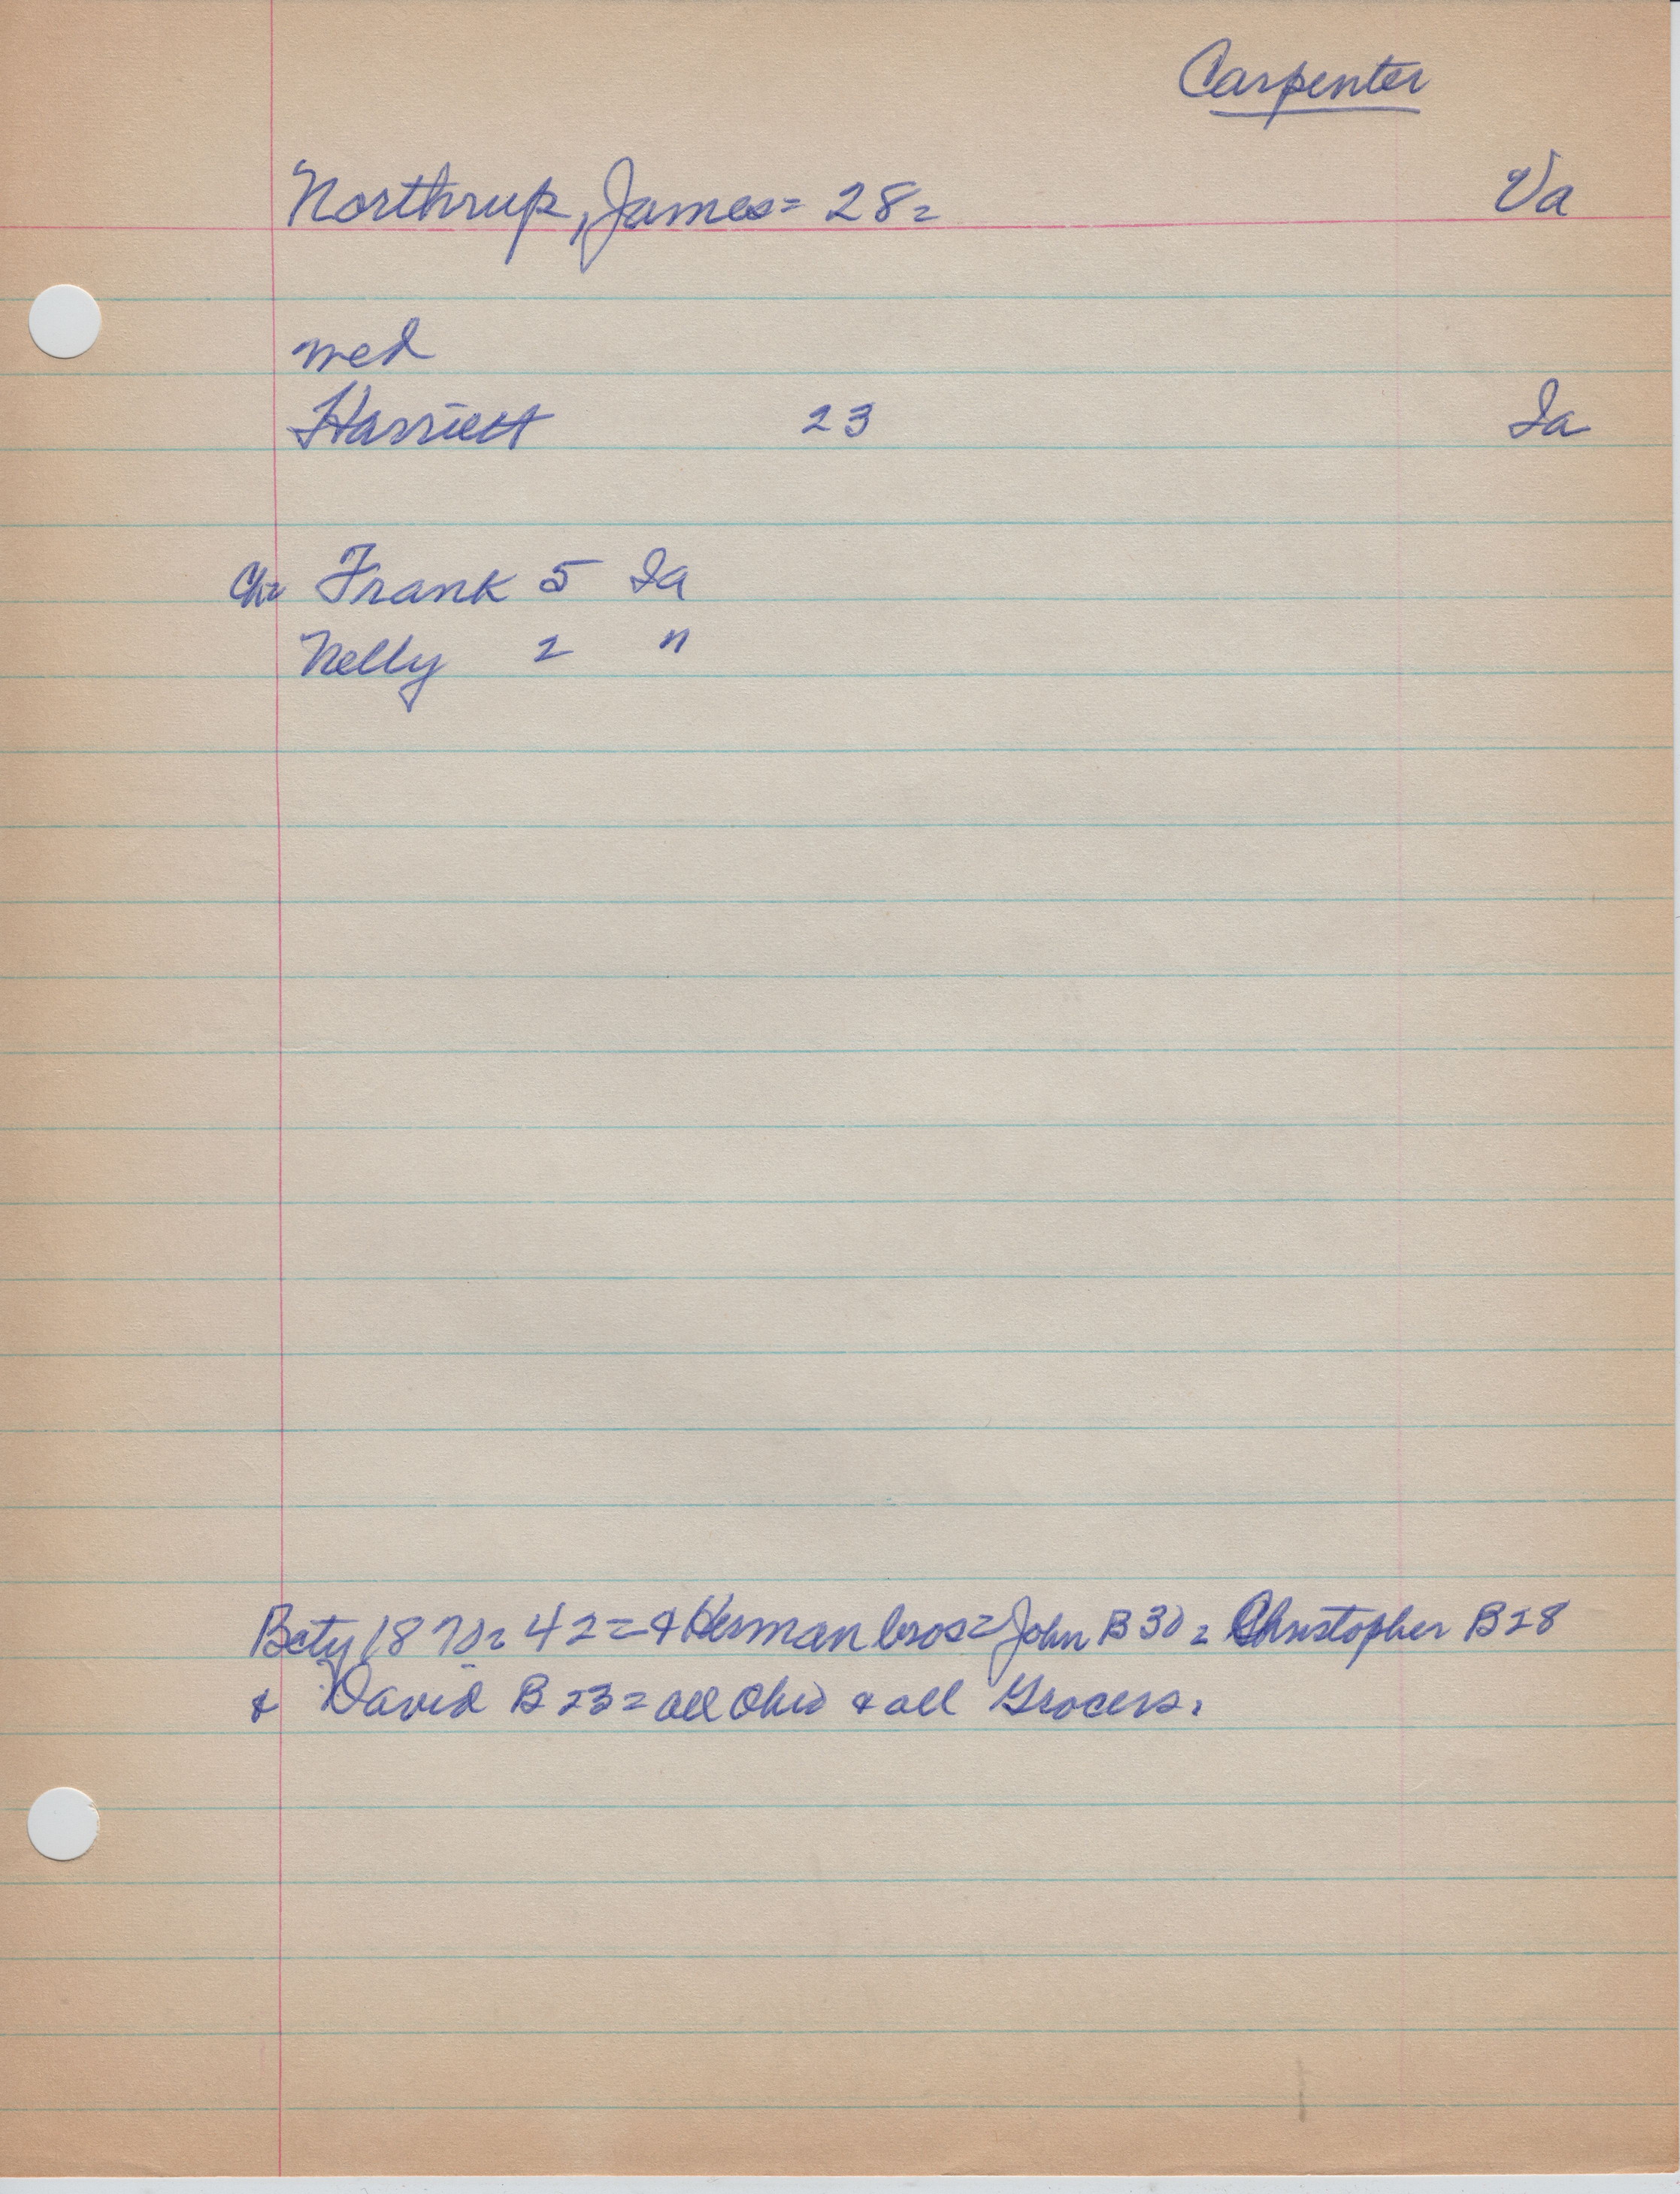 Carpenter
Northrup, James = 28 = Va
med
Harriett 23 Ia
Ch= Frank 5 Ia
Nelly 2 "
Bcty 1870 = 42 = & Herman bros = John B 30 = Christopher B 28
& David B 23 = all Ohio & all Grocers.